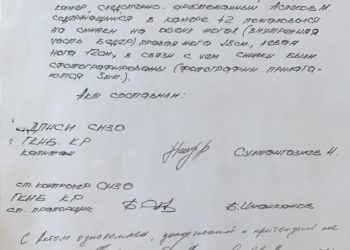 камер, следственно-арестованный Асаков М.
содержащийся в камере 42 пожаловался
на синяки на обеих ногах (внутренняя
часть бедер) правая нога 13см, левая
нога 12см, в связи с чем синяки были
сфотографированы (фотографии прилага-
ются 3шт).
Акт составили:
ДПНСИ СИЗО
ГКНБ КР
капитан Султангазиев Н.
ст. контролер СИЗО
ГКНБ КР
ст. прапорщик
С актом ознакомлен, дополнений и претензий не